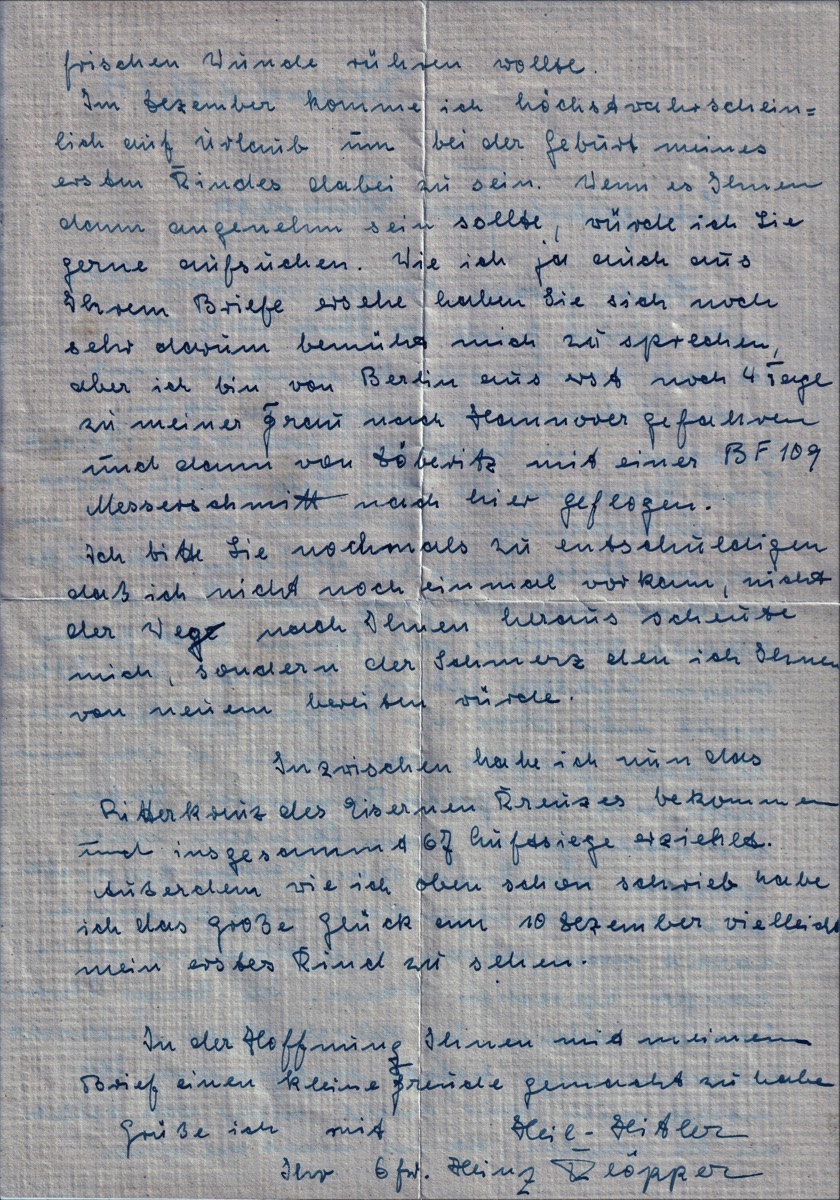 frischen Wunde rühren wollte.
Im Dezember komme ich höchstwahrschein=
lich auf Urlaub um bei der Geburt meines
ersten Kindes dabei zu sein. Wenn es Ihnen
dann angenehm sein sollte, würde ich Sie
gerne aufsuchen. Wie ich ja auch aus
Ihrem Briefe ersehe haben Sie sich noch
sehr darum bemüht mich zu sprechen,
aber ich bin von Berlin aus erst noch 4 Tage
zu meiner Frau nach Hannover gefahren
und dann von Döberitz mit einer BF 109
Messerschmitt nach hier geflogen.
Ich bitte Sie nochmals zu entschuldigen
daß ich nicht noch einmal vorkam, nicht
der Wege nach Ihnen heraus scheute
mich, sondern der Schmerz den ich Ihnen
von neuem bereiten würde.
Inzwischen habe ich nun das
Ritterkreuz des Eisernen Kreuzes bekommen
und insgesammt 67 Luftsiege erziehlt.
Außerdem wie ich oben schon schrieb habe
ich das große Glück am 10 Dezember vielleicht
mein erstes Kind zu sehen.
In der Hoffnung Ihnen mit meinem
Brief einen kleine Freude gemacht zu habe
Grüße ich mit Heil-Hitler
Ihr Ofw. Heinz Klöpper